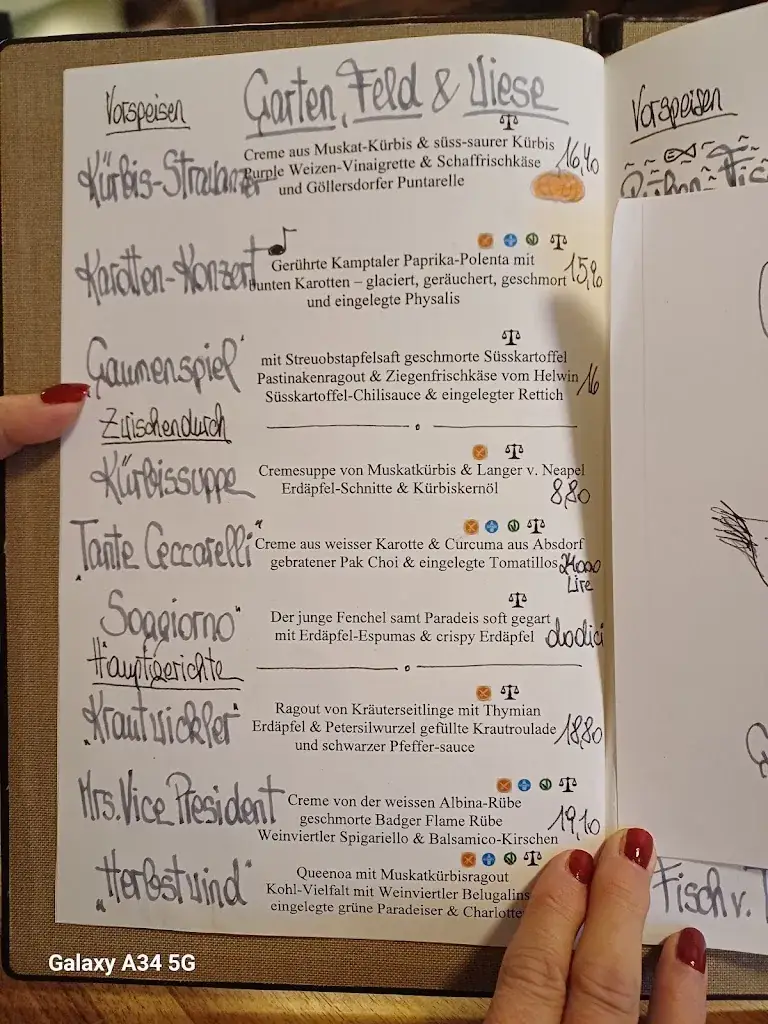 Vorspeisen
Garten, Feld & Wiese
Kürbis-Strawanzer
Creme aus Muskat-Kürbis & süss-saurer Kürbis
Purple Weizen-Vinaigrette & Schaffrischkäse
und Göllersdorfer Puntarelle
16,40
Karotten-Konzert
Gerührte Kamptaler Paprika-Polenta mit
bunten Karotten – glaciert, geräuchert, geschmort
und eingelegte Physalis
Gaumenspiel"
mit Streuobstapfelsaft geschmorte Süsskartoffel
Pastinakenragout & Ziegenfrischkäse vom Helwin
Süsskartoffel-Chilisauce & eingelegter Rettich
16
Zwischendurch
Kürbissuppe
Cremesuppe von Muskatkürbis & Langer v. Neapel
Erdäpfel-Schnitte & Kürbiskernöl
8,80
"Tante Ceccarelli"
Creme aus weisser Karotte & Curcuma aus Absdorf
gebratener Pak Choi & eingelegte Tomatillos
24000
Lire
Soggiorno"
Der junge Fenchel samt Paradeis soft gegart
mit Erdäpfel-Espumas & crispy Erdäpfel
dodici
Hauptgerichte
„Krautwickler"
Ragout von Kräuterseitlinge mit Thymian
Erdäpfel & Petersilwurzel gefüllte Krautroulade
und schwarzer Pfeffer-sauce
18,80
Mrs. Vice President
Creme von der weissen Albina-Rübe
geschmorte Badger Flame Rübe
Weinviertler Spigariello & Balsamico-Kirschen
19,10
„Herbstwind"
Queenoa mit Muskatkürbisragout
Kohl-Vielfalt mit Weinviertler Belugalins
eingelegte grüne Paradeiser & Charlotte
Vorspeisen
Fisch v.
Galaxy A34 5G